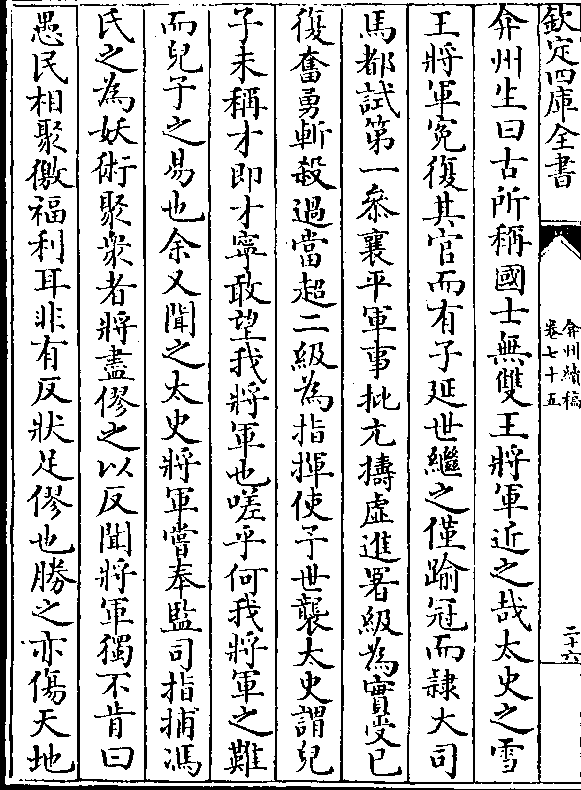 欽定四庫全書
弇州續稿
卷七十五
二十六
弇州生曰古所稱國士無雙王將軍近之哉太史之雪
王將軍冤復其官而有子延世繼之僅踰冠而隸大司
馬都試第一叅襄平軍事批亢擣虛進署級為實受已
復奮勇斬殺過當超二級為指揮使予世襲太史謂兒
子未稱才即才寧敢望我將軍也嗟乎何我將軍之難
而兒子之易也余又聞之太史將軍嘗奉監司指捕馮
氏之為妖術聚衆者將盡僇之以反聞將軍獨不肯曰
愚民相聚徼福利耳非有反狀足僇也勝之亦傷天地